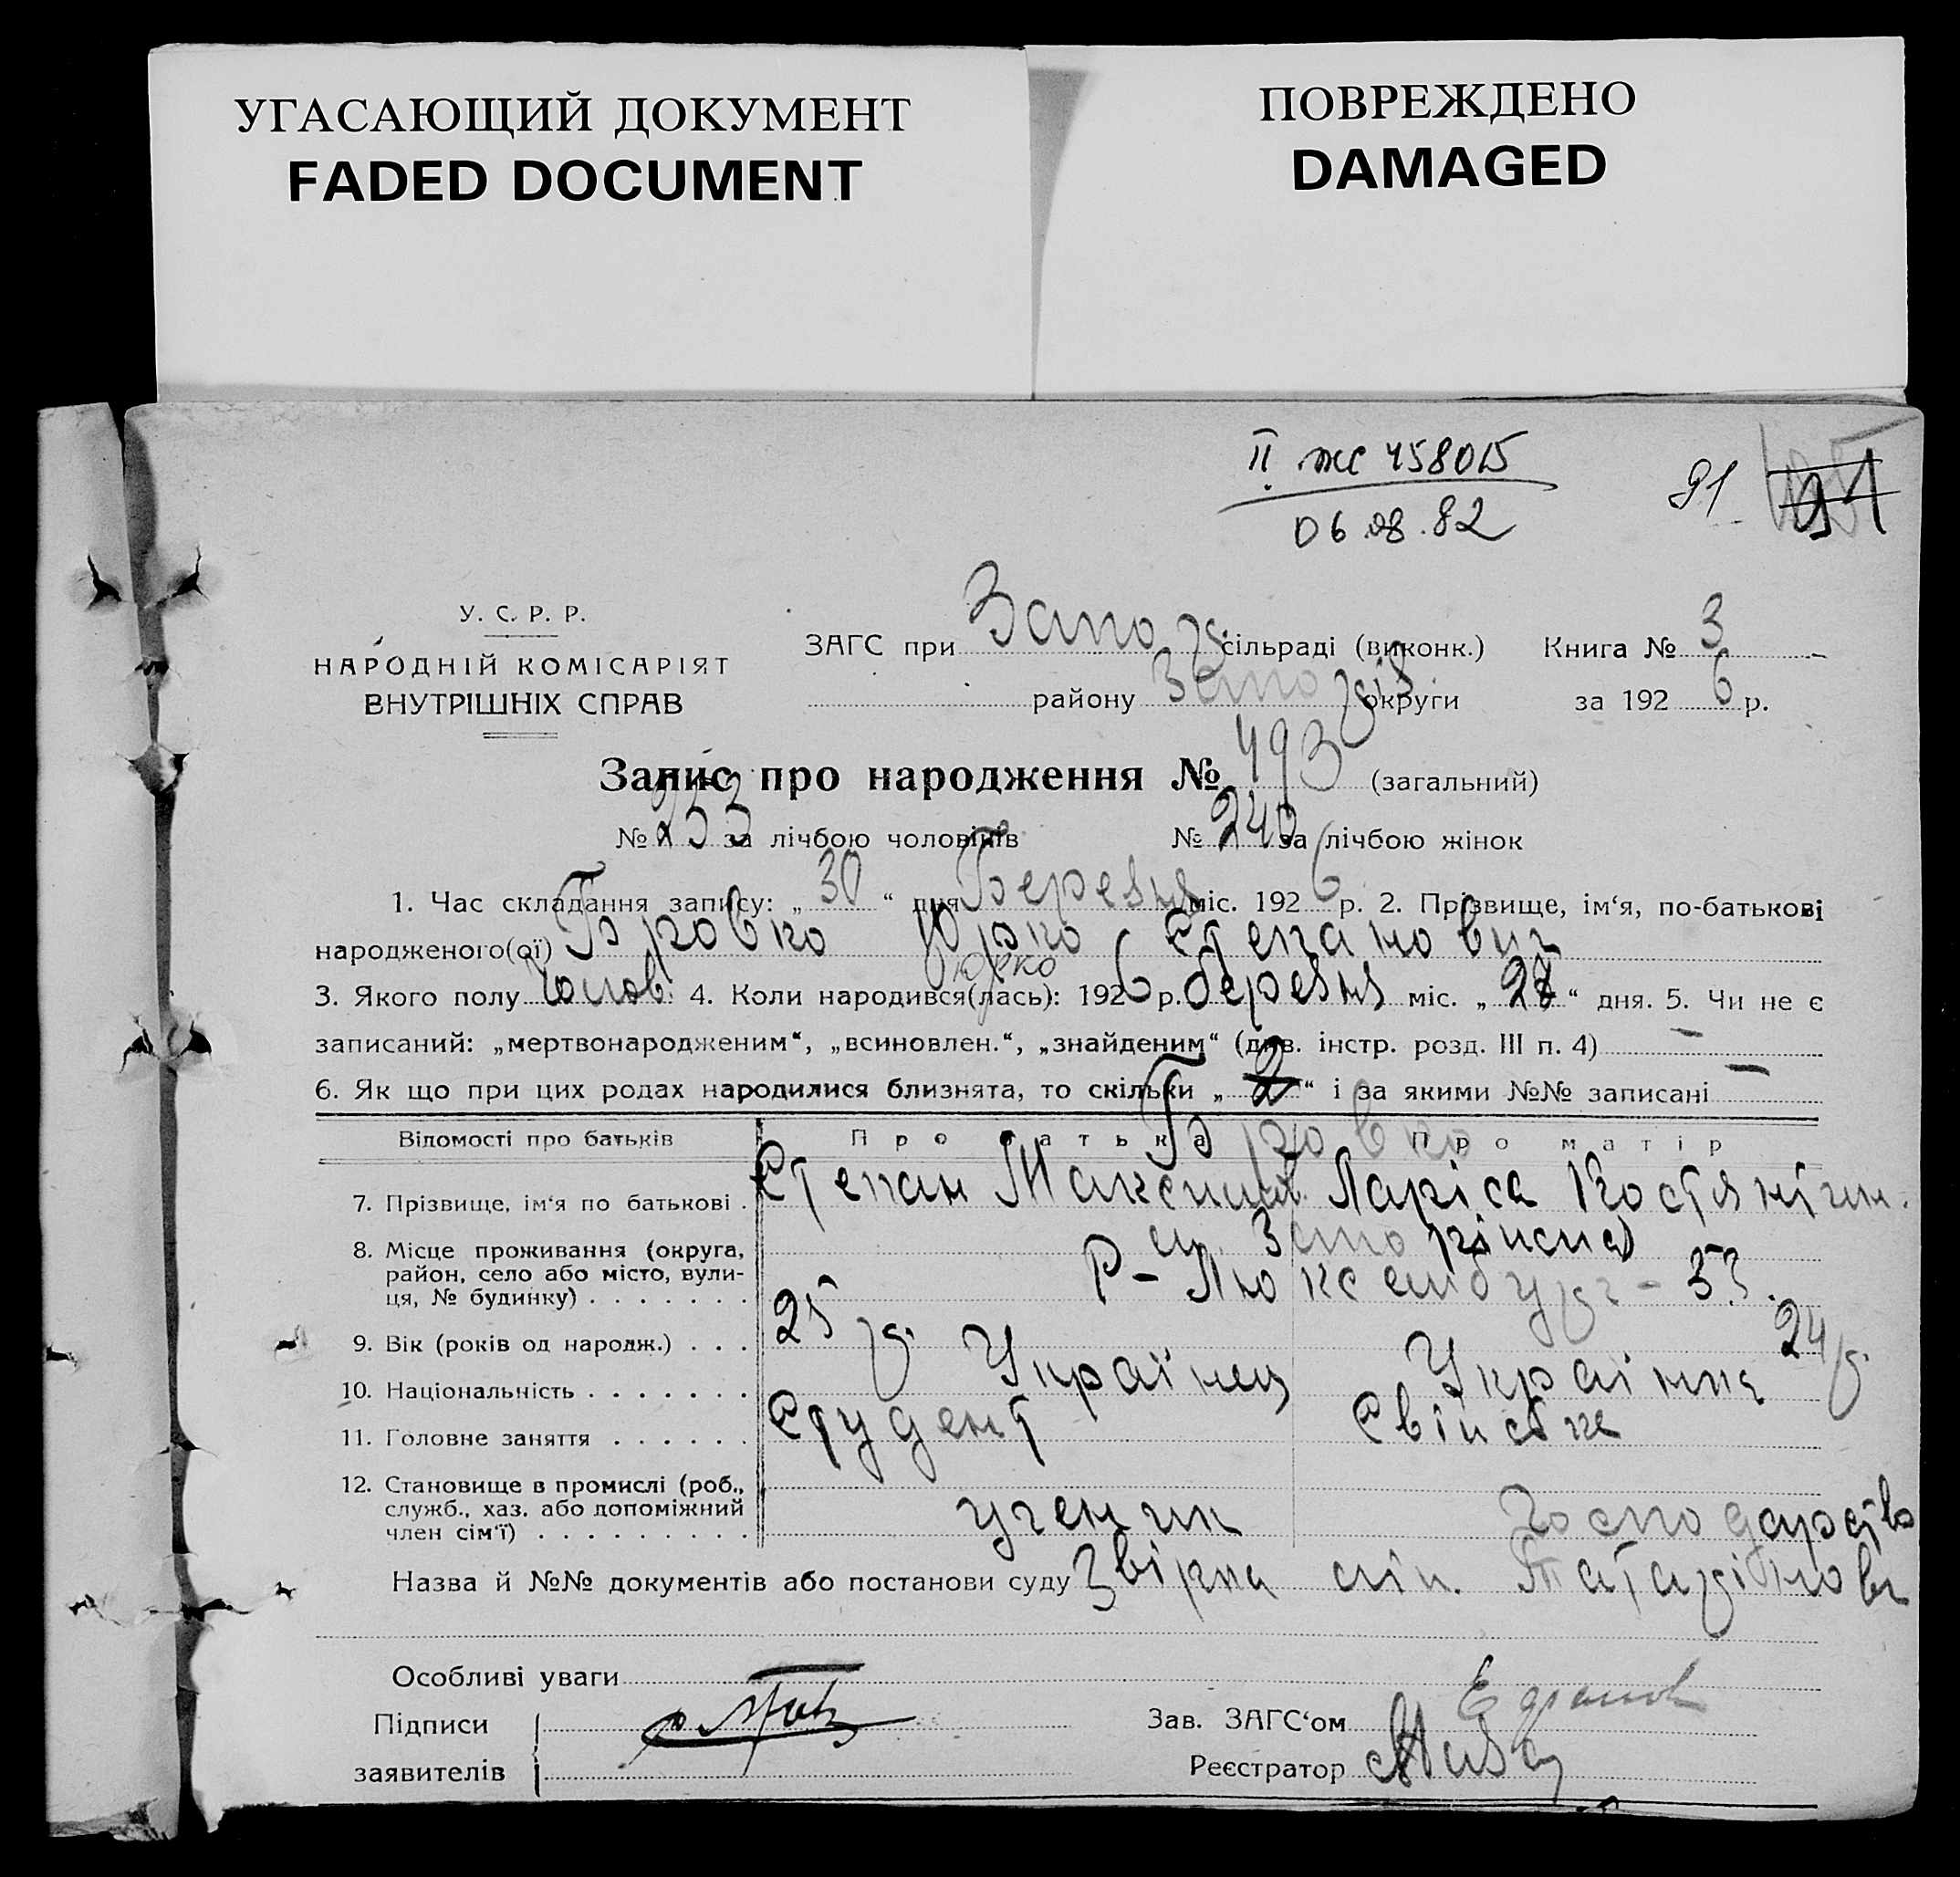 УГАСАЮЩИЙ ДОКУМЕНТ
FADED DOCUMENT
ПОВРЕЖДЕНО
DAMAGED
II жс 458015
06.08.82
91 91
У. С. Р. Р.
НАРОДНІЙ КОМІСАРІЯТ
ВНУТРІШНІХ СПРАВ
ЗАГС при Запоріз сільраді (виконк.) Книга № 3
району Запорізь округи за 1926 р.
Запис про народження № 493 (загальний)
№ 253 за лічбою чоловіків № 240 за лічбою жінок
1. Час складання запису: „30“ дня Березня міс. 1926 р. 2. Прізвище, ім‘я, по-батькові
народженого(ої) Бровко Юрко Степанович
Юрко
3. Якого полу Чолов. 4. Коли народився(лась): 1926 р. березня міс. „28“ дня. 5. Чи не є
записаний: „мертвонародженим“, „всиновлен.“, „знайденим“ (див. інстр. розд. III п. 4) —
6. Як що при цих родах народилися близнята, то скільки „2“ і за якими №№ записані —
Відомості про батьків Про батька Про матір
Бровко
7. Прізвище, ім‘я по батькові . Степан Максимов. Ларіса Костянтин.
8. Місце проживання (округа, район, село або місто, вулиця, № будинку) . . . . . . . Запоріжська
Р-Люксембург-33.
9. Вік (років од народж.) . . . 25 р. 24 р.
10. Національність . . . . . . . Українец Українка
11. Головне заняття . . . . . . Студент Свійське
12. Становище в промислі (роб., служб., хаз. або допоміжний член сім‘ї) . . . . . . . . . ученик Господарство
Назва й №№ документів або постанови суду Звірка
Особливі уваги
Підписи
заявителів
Зав. ЗАГС‘ом
Реєстратор